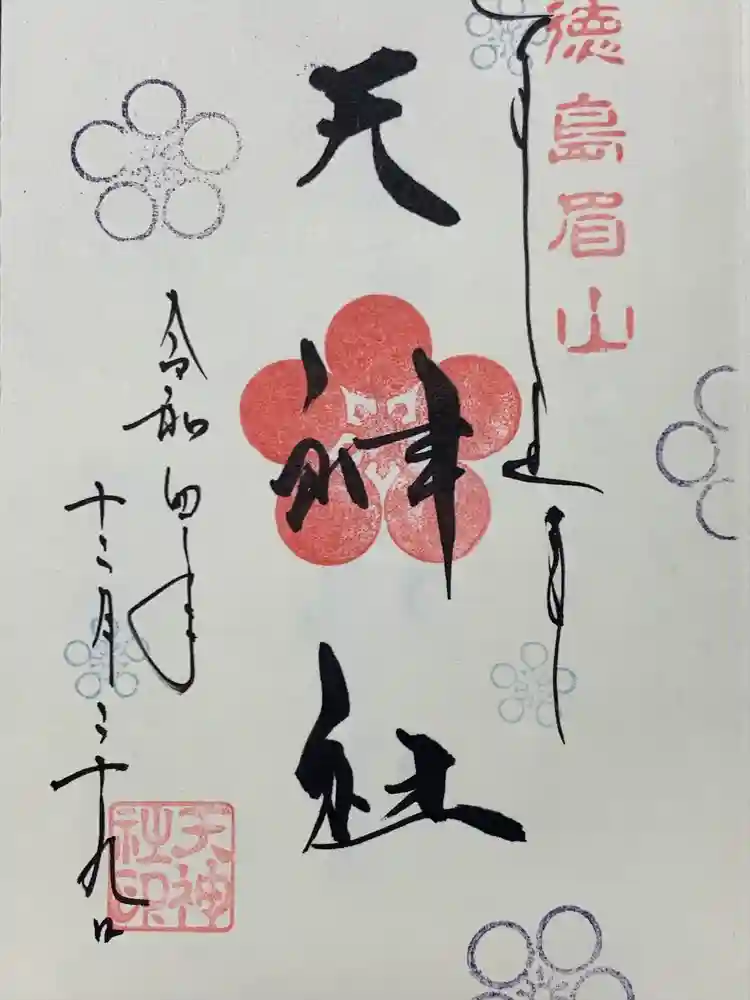 徳島眉山
天神社
令和四年
十二月二十九日
天神社印